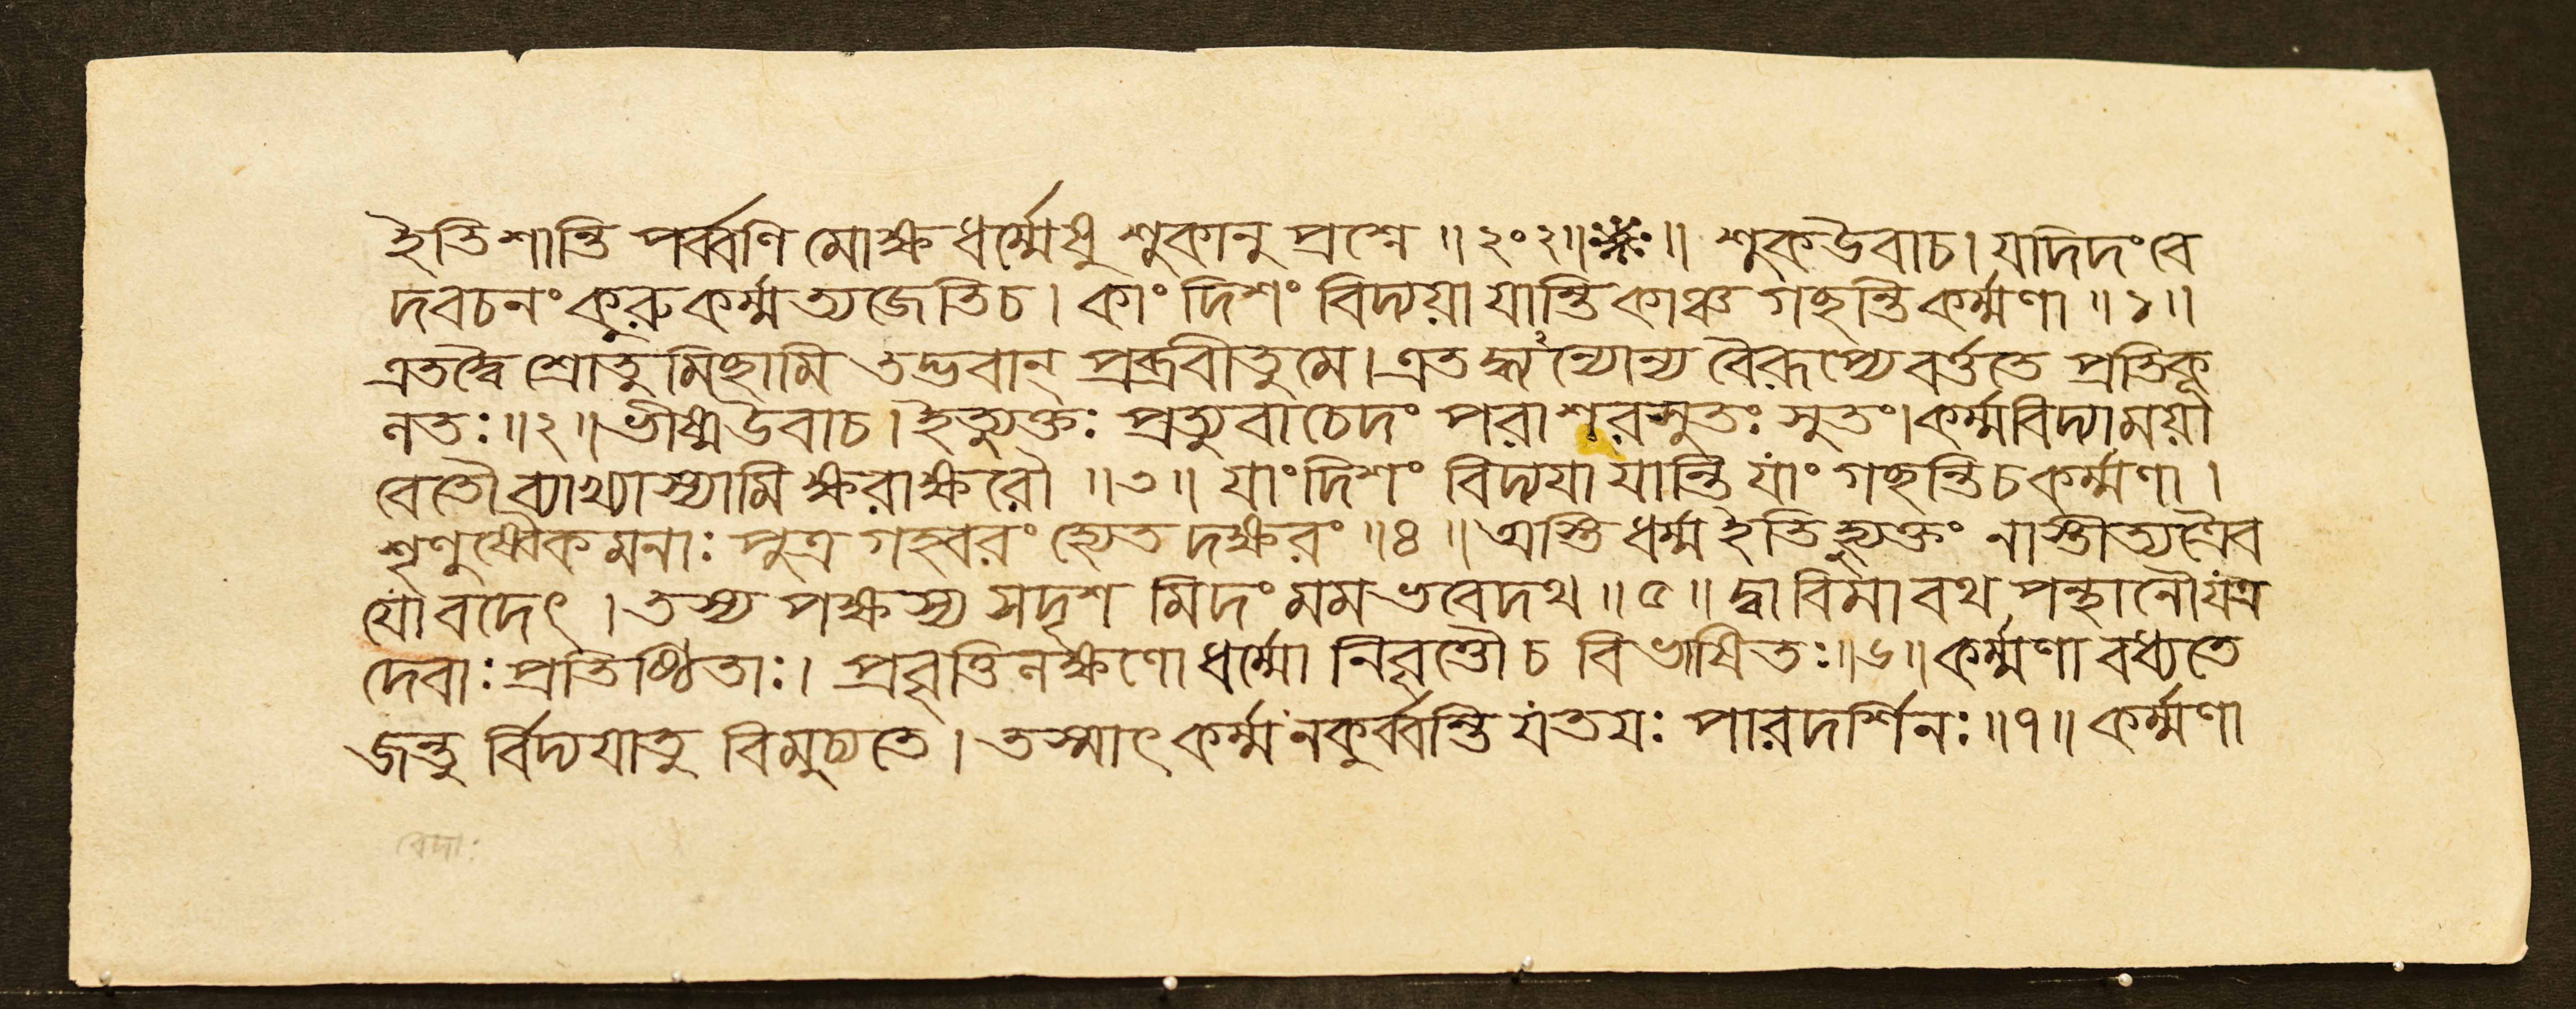 ইতিশান্তি পর্ব্বণি মোক্ষ ধর্ম্মেষু শুকানু প্রশ্নে ॥ ২০২॥ ❋ ॥ শুকউবাচ। যদিদং বে
দবচনং কুরুকর্ম্ম ত্যজেতিচ। কাং দিশং বিদ্যয়া যান্তি কাঞ্চ গচ্ছন্তি কর্ম্মণা ॥ ১॥
এতদ্বৈ শ্রোতুমিচ্ছামি তদ্ভবান্ প্রব্রবীতু মে। এতদ্ধ্যন্যোন্য বৈরূপ্যে বর্ত্ততে প্রতিকূ
লতঃ॥২॥ ভীষ্মউবাচ। ইত্যুক্তঃ প্রত্যুবাচেদং পরাশরসুতঃ সুতং। কর্ম্মবিদ্যাময়া
বেতৌ ব্যাখ্যাস্যামি ক্ষরাক্ষরৌ ॥৩॥ যাং দিশং বিদ্যযা যান্তি যাং গচ্ছন্তিচ কর্ম্মণা ।
শৃণুষ্বৈকমনাঃ পুত্র গহ্বরং হ্যেতদক্ষরং ॥৪॥ অস্তি ধর্ম্ম ইতি হ্যুক্তং নাস্তীত্যত্রৈব
যো বদেৎ । তস্য পক্ষস্য সদৃশ মিদং মম ভবেদথ ॥ ৫॥ দ্বাবিমাবথ পন্থানৌ যত্র
দেবাঃ প্রতিষ্ঠিতাঃ। প্রবৃত্তিলক্ষণো ধর্ম্মো নিবৃত্তৌ চ বিভাষিতঃ॥৬॥ কর্ম্মণা বধ্যতে
জন্তু র্বিদ্যযাতু বিমুচ্যতে। তস্মাৎ কর্ম্ম নকুর্ব্বন্তি যতযঃ পারদর্শিনঃ॥৭॥ কর্ম্মণা
বেদাঃ